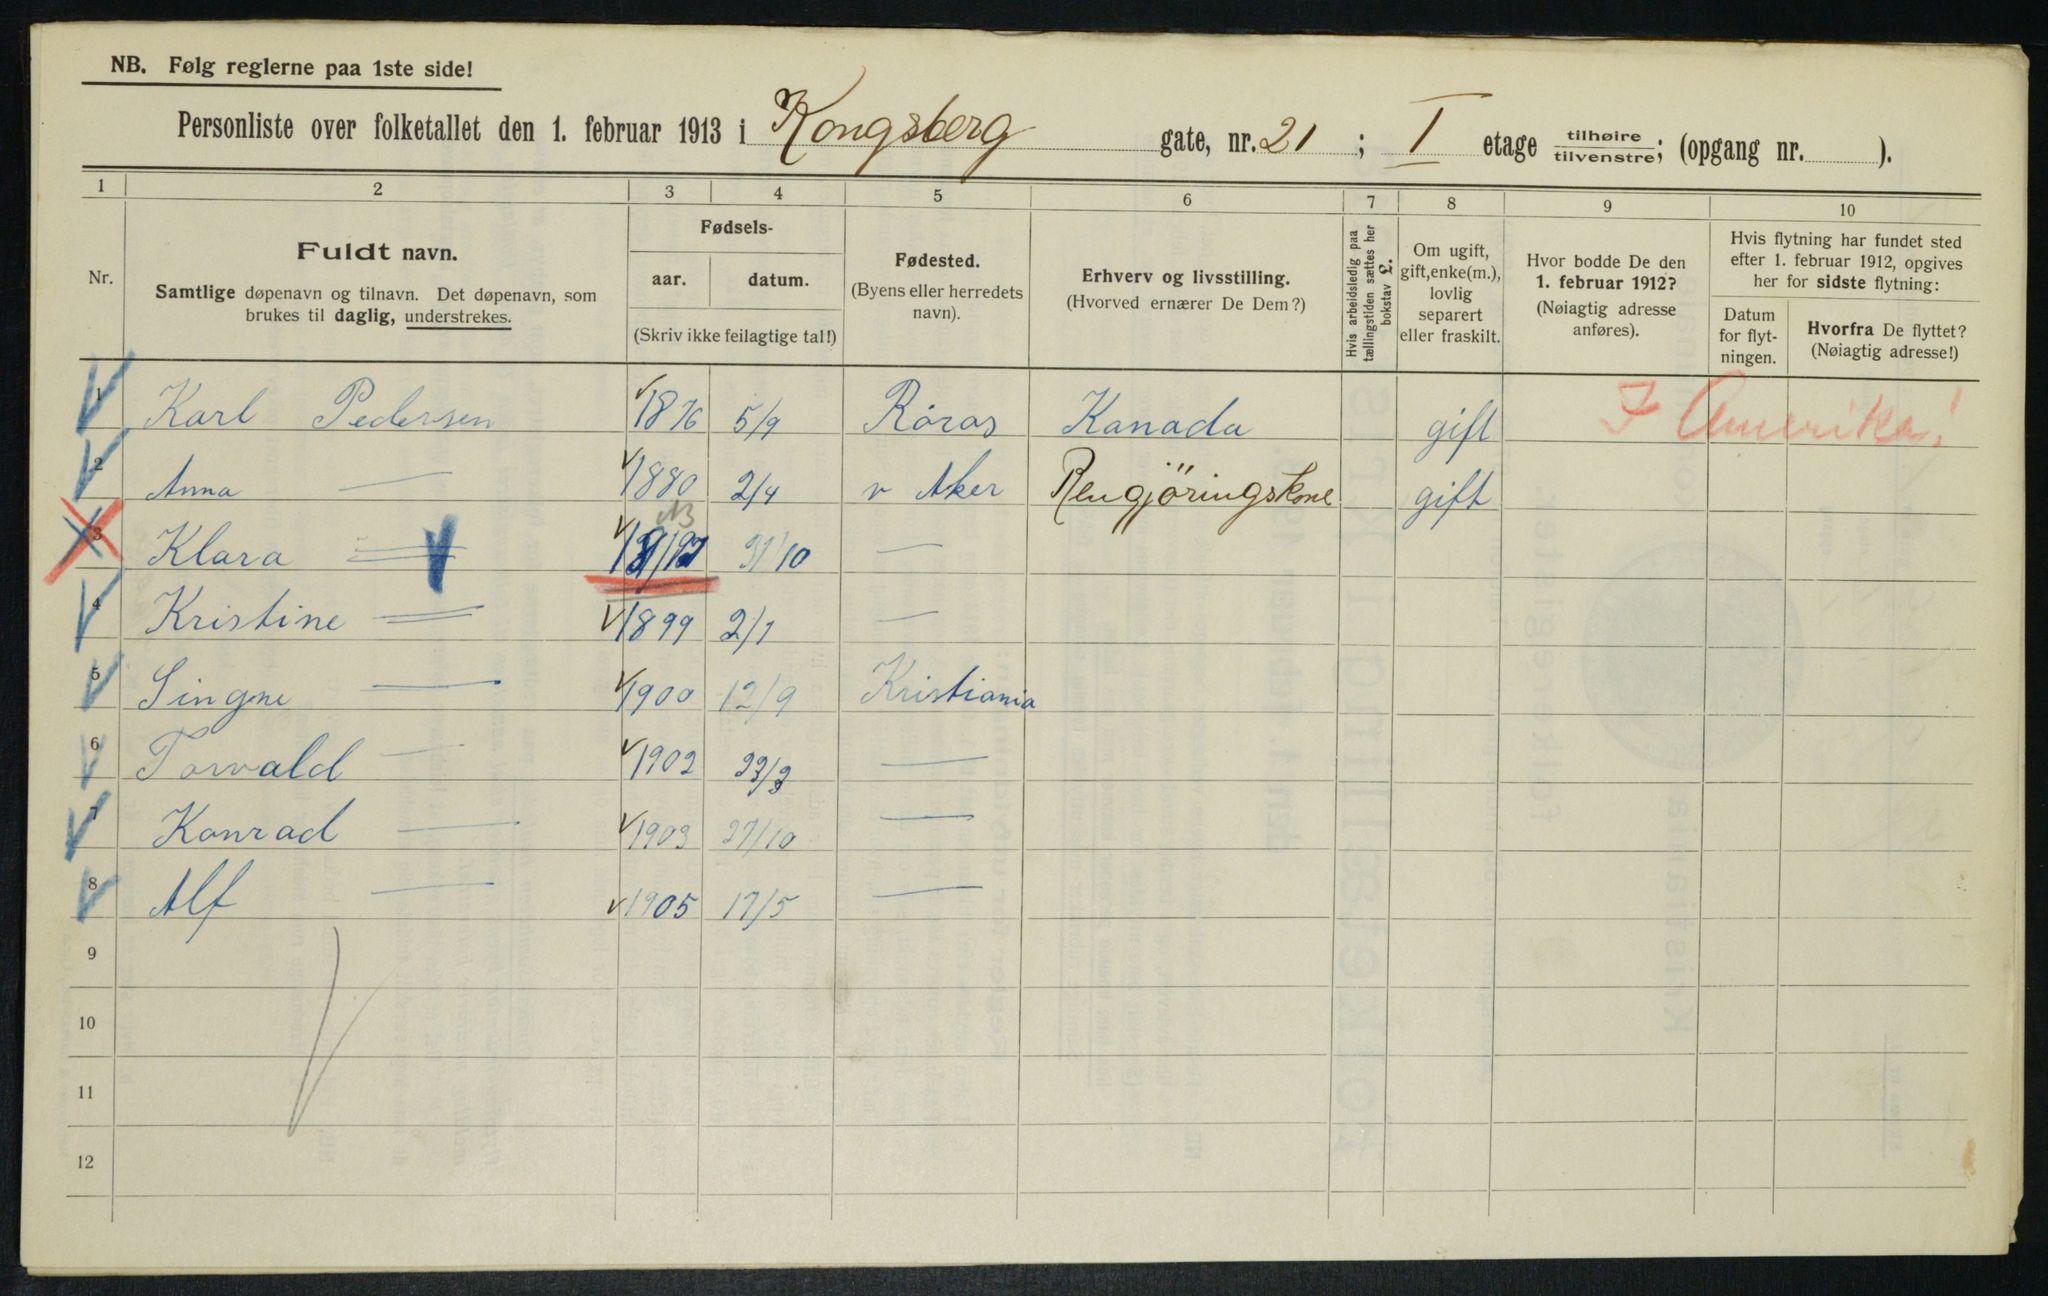 NB. Følg reglerne paa 1ste side!
Personliste over folketallet den 1. februar 1913 i Kongsberg gate, nr. 21; I etage tilhøire tilvenstre; (opgang nr. ).
1 2 3 4 5 6 7 8 9 10
Nr.
Fuldt navn.
Samtlige døpenavn og tilnavn. Det døpenavn, som
brukes til daglig, understrekes.
Fødsels-
aar. datum.
(Skriv ikke feilagtige tal!)
Fødested.
(Byens eller herredets
navn).
Erhverv og livsstilling.
(Hvorved ernærer De Dem?)
Hvis arbeidsledig paa
tællingstiden sættes her
bokstav L.
Om ugift,
gift, enke(m.),
lovlig
separert
eller fraskilt.
Hvor bodde De den
1. februar 1912?
(Nøiagtig adresse
anføres).
Hvis flytning har fundet sted
efter 1. februar 1912, opgives
her for sidste flytning:
Datum
for flyt-
ningen.
Hvorfra De flyttet?
(Nøiagtig adresse!)
1 Karl Pedersen 1876 5/9 Röros Kanada gift I Amerika!
2 Anna — 1880 2/4 v Aker Rengjöringskone gift
3 Klara — 31/10 —
4 Kristine — 1899 2/1 —
5 Singne — 1900 12/9 Kristiania
6 Torvald — 1902 23/3 —
7 Konrad — 1903 27/10 —
8 Alf — 1905 17/5 —
9
10
11
12